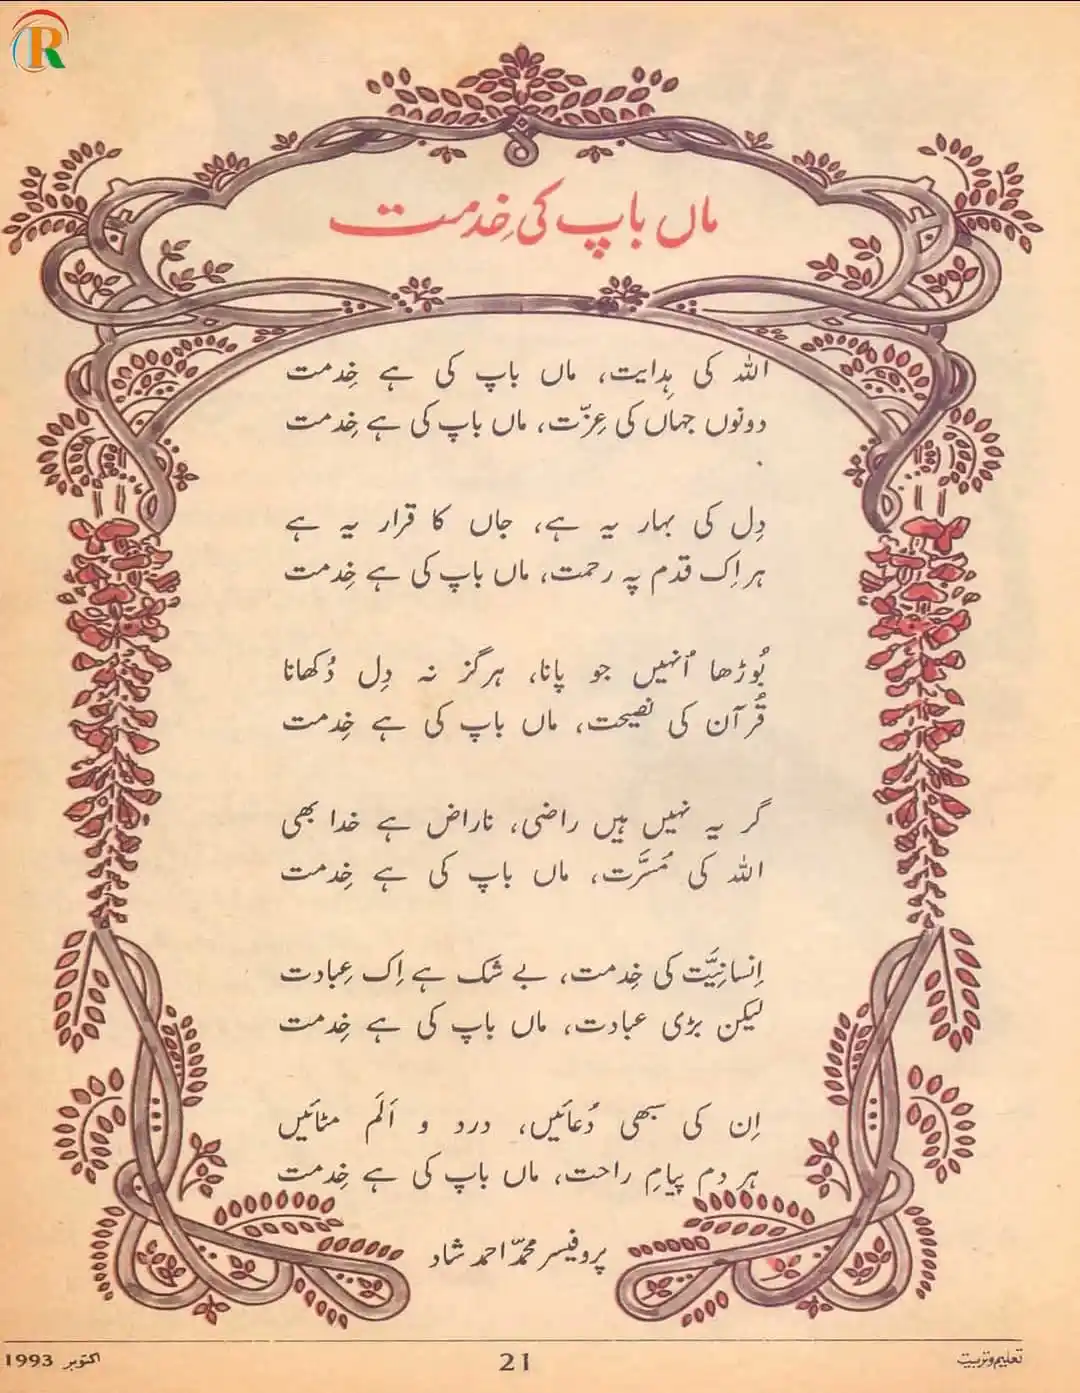 R
ماں باپ کی خِدمت
اللہ کی ہِدایت، ماں باپ کی ہے خِدمت
دونوں جہاں کی عِزّت، ماں باپ کی ہے خِدمت
دِل کی بہار یہ ہے، جاں کا قرار یہ ہے
ہر اِک قدم پہ رحمت، ماں باپ کی ہے خِدمت
بُوڑھا اُنہیں جو پانا، ہرگز نہ دِل دُکھانا
قُرآن کی نصیحت، ماں باپ کی ہے خِدمت
گر یہ نہیں ہیں راضی، ناراض ہے خدا بھی
اللہ کی مُسرَّت، ماں باپ کی ہے خِدمت
اِنسانِیَّت کی خِدمت، بے شک ہے اِک عِبادت
لیکن بڑی عبادت، ماں باپ کی ہے خِدمت
اِن کی سبھی دُعائیں، درد و اَلَم مٹائیں
ہر دم پیامِ راحت، ماں باپ کی ہے خِدمت
پروفیسر محمّد احمد شاد
تعلیم و تربیت
21
اکتوبر 1993